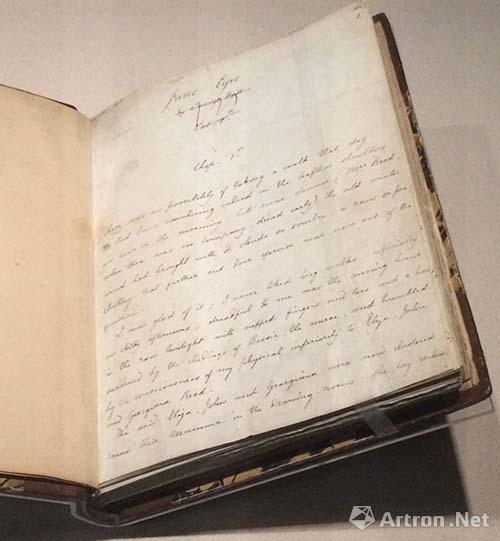 Jane Eyre
by Currer Bell
Vol. 1st
Chap. 1st
There was no possibility of taking a walk that day.
We had been wandering indeed in the leafless shrubbery
an hour in the morning, but since dinner (Mrs Reed,
when there was no company dined early) the cold winter
wind had brought with it clouds so sombre, a rain so pene-
trating that further out-door exercise was now out of the
question.
I was glad of it; I never liked long walks especially
on chilly afternoons; dreadful to me was the coming home
in the raw twilight with nipped fingers and toes and a heart
saddened by the chidings of Bessie the nurse, and humbled
by the consciousness of my physical inferiority to Eliza, John
and Georgiana Reed.
The said Eliza, John and Georgiana were now clustered
round their Mamma in the drawing-room: she lay reclin-
Artron.Net